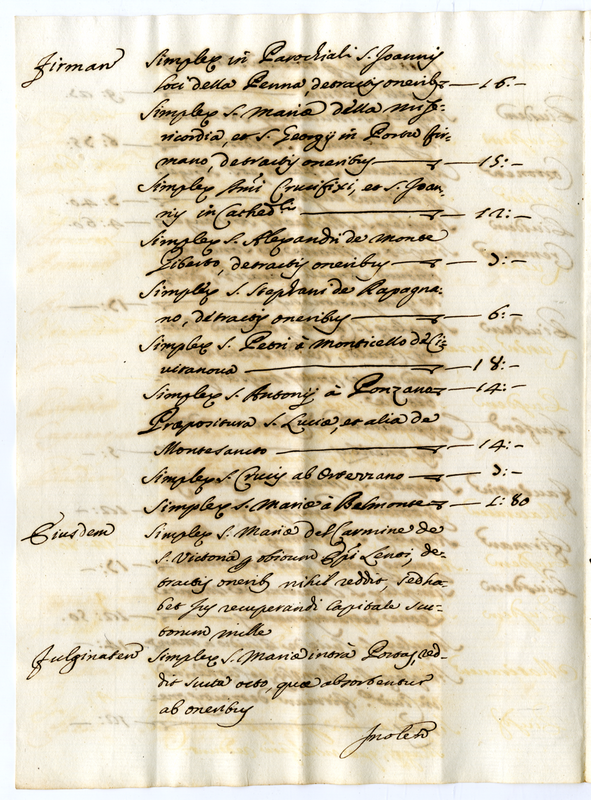 Firman̄ Simplex in Parochiali S. Joannis
loci della Penna, detractis oneribs — 16: –
Simplex S. Mariæ della Mise-
ricordia, et S. Georgij in Porto fir-
mano, detractis oneribus — 15: –
Simplex Smi Crucifixi, et S. Joan-
nis in Cathedli — 12: –
Simplex S. Alexandri de Monte
Giberto, detractis oneribus — 3: –
Simplex S. Stephani de Rapagna-
no, detractis oneribus — 6: –
Simplex S. Petri à Monticello de Ci-
vitanova — 18: –
Simplex S. Antonij à Ponzano — 14: –
Præpositura S. Luciæ, et alia de
Montesancto — 14: –
Simplex S. Crucis ab Ortezzano — 3: –
Simplex S. Mariæ à Belmonte — 1: 80
Eiusdem Simplex S. Mariæ del Carmine de
S. Victoria obitum Lenti, de-
tractis onerib nihil reddit, sed ha-
bet Jus recuperandi Capitale scu-
torum mille
Fulginaten̄ Simplex S. Mariæ intrà Portas, red-
dit scuta octo, quæ absorbentur
ab oneribus
Imolen̄